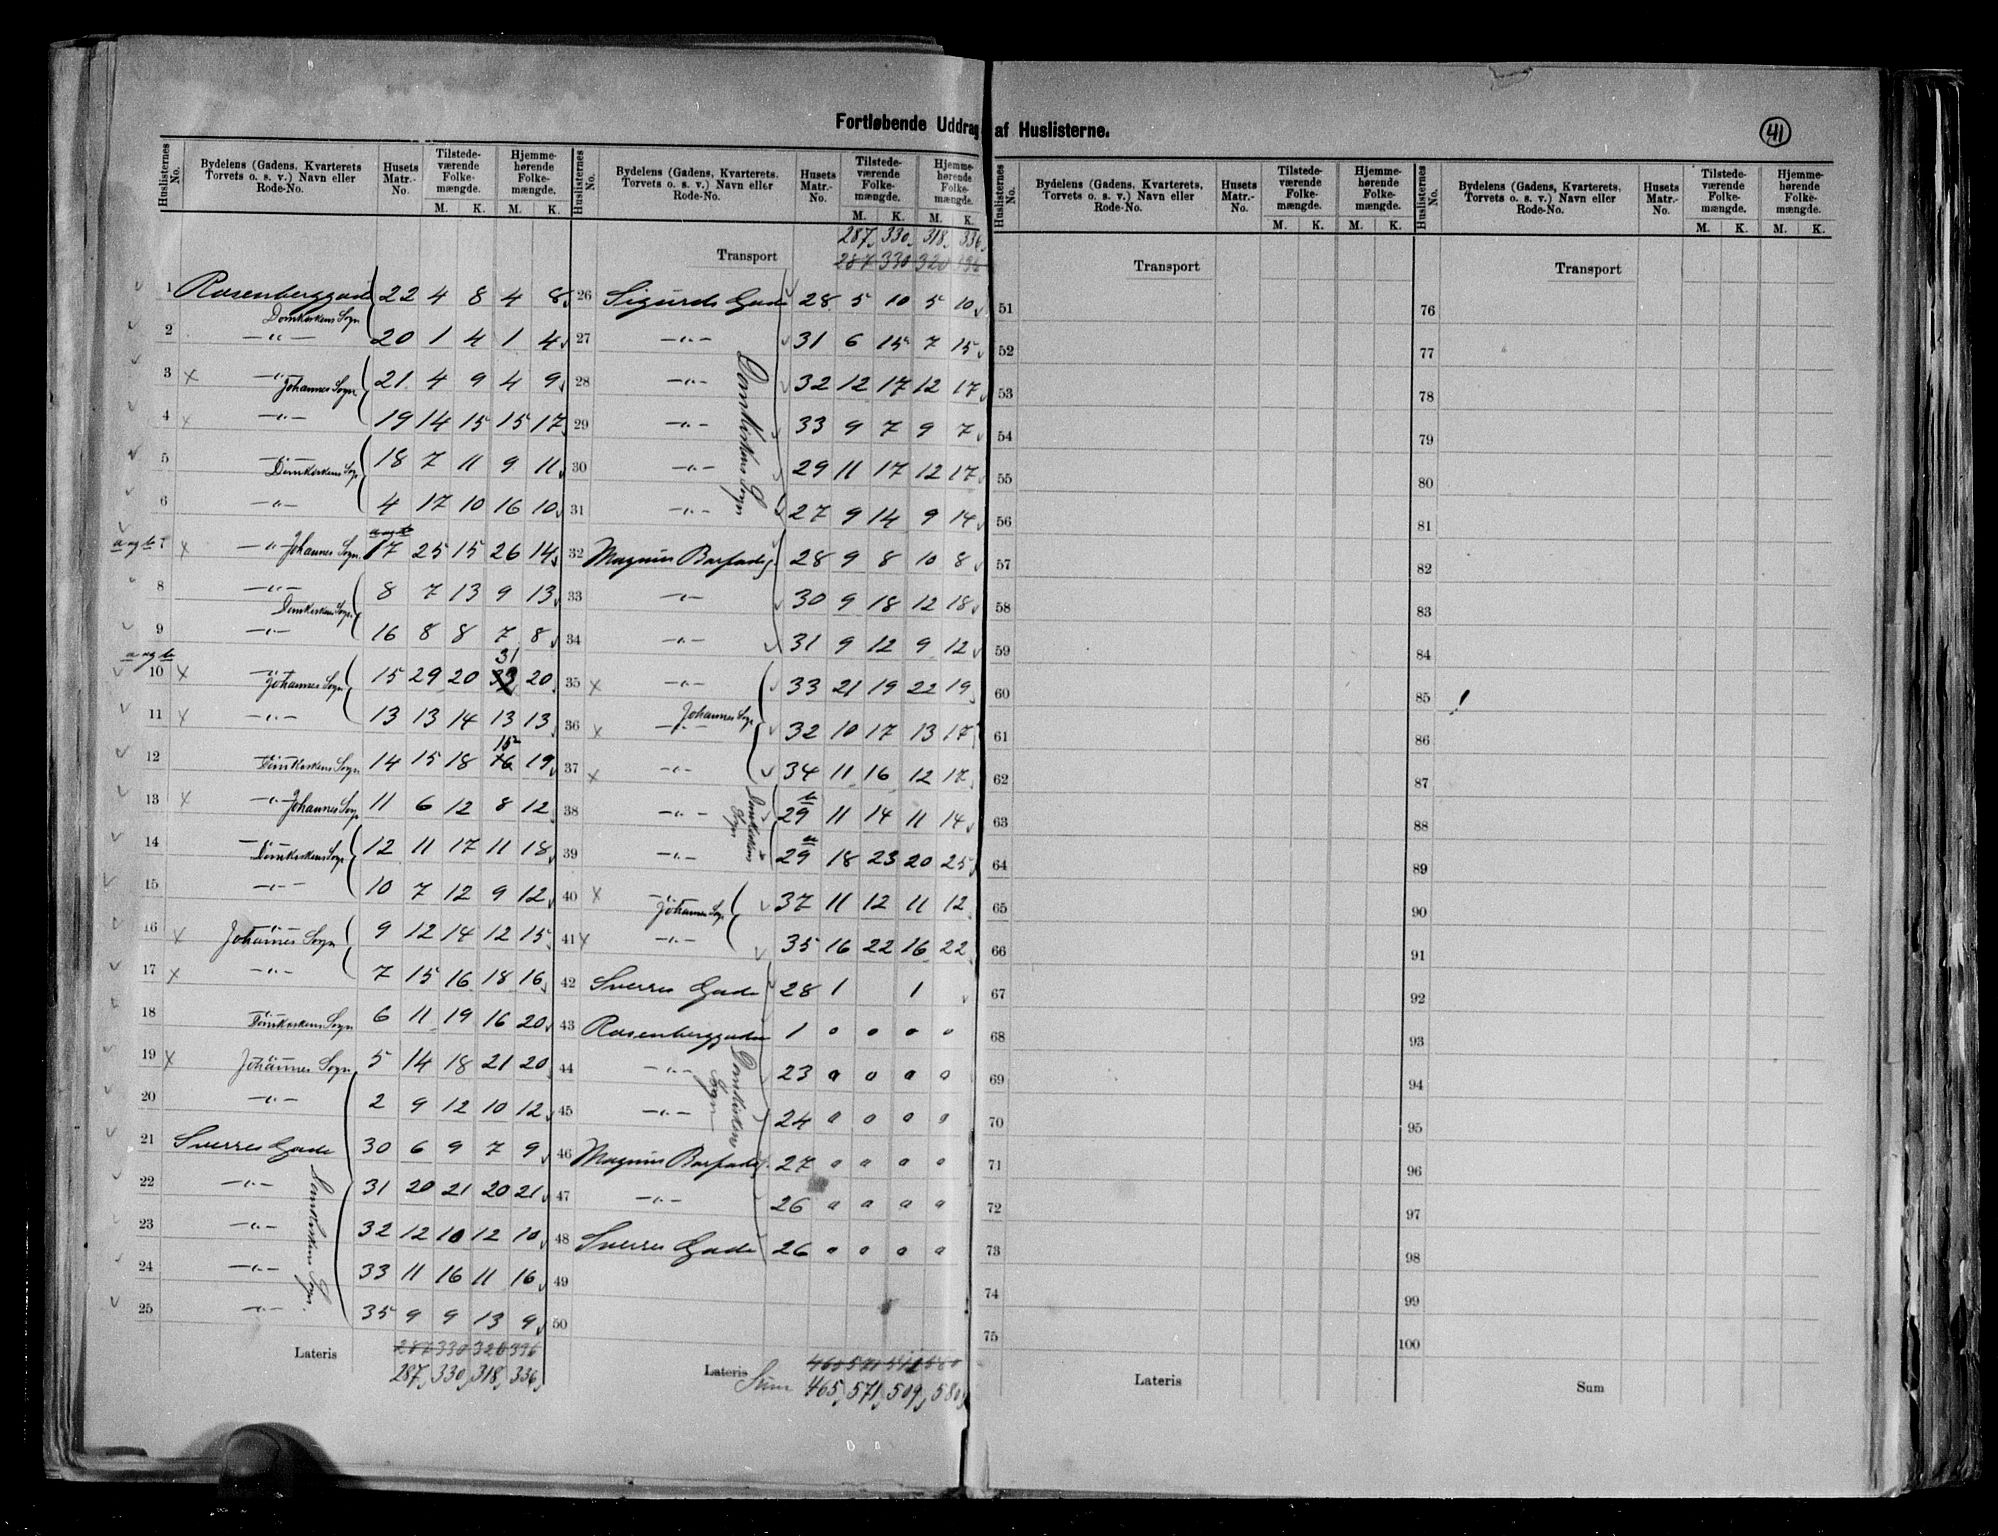 Fortløbende Uddrag af Huslisterne.
41
Huslisternes No. Bydelens (Gadens, Kvarterets Torvets o. s. v.) Navn eller Rode-No. Husets Matr.-No. Tilstede-værende Folke-mængde. M. K. Hjemme-hørende Folke-mængde. M. K.
1 Rosenberggade 22 4 8 4 8
Domkirkens Sogn
2 —"— 20 1 4 1 4
3 x —"— Johannes Sogn 21 4 9 4 9
4 x —"— 19 14 15 15 17
5 —"— Domkirkens Sogn 18 7 11 9 11
6 —"— 4 17 10 16 10
a og b 7 x —"— Johannes Sogn a og b 17 25 15 26 14
8 —"— 8 7 13 9 13
Domkirkens Sogn
9 —"— 16 8 8 7 8
a og b 31
10 x —"— Johannes Sogn 15 29 20 33 20
11 x —"— 13 13 14 13 13
15
12 —"— Domkirkens Sogn 14 15 18 16 19
13 x —"— Johannes Sogn 11 6 12 8 12
14 —"— Domkirkens Sogn 12 11 17 11 18
15 —"— 10 7 12 9 12
16 x —"— Johannes Sogn 9 12 14 12 15
17 x —"— 7 15 16 18 16
18 —"— Domkirkens Sogn 6 11 19 16 20
19 x —"— Johannes Sogn 5 14 18 21 20
20 —"— 2 9 12 10 12
21 Sverres Gade 30 6 9 7 9
22 —"— 31 20 21 20 21
Domkirkens Sogn.
23 —"— 32 12 10 12 10
24 —"— 33 11 16 11 16
25 —"— 35 9 9 13 9
Lateris 287 330 320 336
287 330 318 336
Huslisternes No. Bydelens (Gadens, Kvarterets, Torvets o. s. v.) Navn eller Rode-No. Husets Matr.-No. Tilstede-værende Folke-mængde. M. K. Hjemme-hørende Folke-mængde. M. K.
287 330 318 336
Transport 287 330 320 336
26 Sigurds Gade 28 5 10 5 10
27 —"— 31 6 15 7 15
28 —"— 32 12 17 12 17
Domkirkens Sogn
29 —"— 33 9 7 9 7
30 —"— 29 11 17 12 17
31 —"— 27 9 14 9 14
32 Magnus Barfodsg. 28 9 8 10 8
33 —"— 30 9 18 12 18
34 —"— 31 9 12 9 12
35 x —"— 33 21 19 22 19
Johannes Sogn
36 x —"— 32 10 17 13 17
37 x —"— 34 11 16 12 17
38 —"— 29 b 11 14 11 14
Domkirkens Sogn
39 —"— 29 a 18 23 20 25
40 x —"— Johannes Sogn 37 11 12 11 12
41 x —"— 35 16 22 16 22
42 Sverres Gade 28 1 1
43 Rosenberggaden 1 0 0 0 0
44 —"— 23 0 0 0 0
Domkirkens Sogn
45 —"— 24 0 0 0 0
46 Magnus Barfodsg. 27 0 0 0 0
47 —"— 26 0 0 0 0
48 Sverres Gade 26 0 0 0 0
49
50
Lateris
Sum 465 571 509 580
Huslisternes No. Bydelens (Gadens, Kvarterets, Torvets o. s. v.) Navn eller Rode-No. Husets Matr.-No. Tilstede-værende Folke-mængde. M. K. Hjemme-hørende Folke-mængde. M. K.
Transport
51
52
53
54
55
56
57
58
59
60
61
62
63
64
65
66
67
68
69
70
71
72
73
74
75
Lateris
Huslisternes No. Bydelens (Gadens, Kvarterets, Torvets o. s. v.) Navn eller Rode-No. Husets Matr.-No. Tilstede-værende Folke-mængde. M. K. Hjemme-hørende Folke-mængde. M. K.
Transport
76
77
78
79
80
81
82
83
84
85
86
87
88
89
90
91
92
93
94
95
96
97
98
99
100
Sum